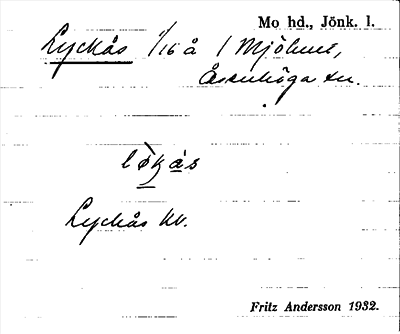 Mo hd., Jönk. l.
Lyckås 1/16 å 1 Mjöhult,
Åsenhöga sn.
lø̀kås
Lyckås kv.
Fritz Andersson 1932.